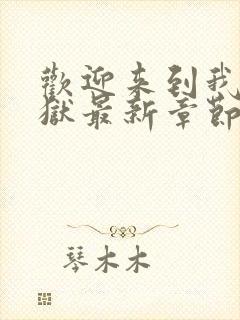 歡迎来到我
獄最新章節
琴木木